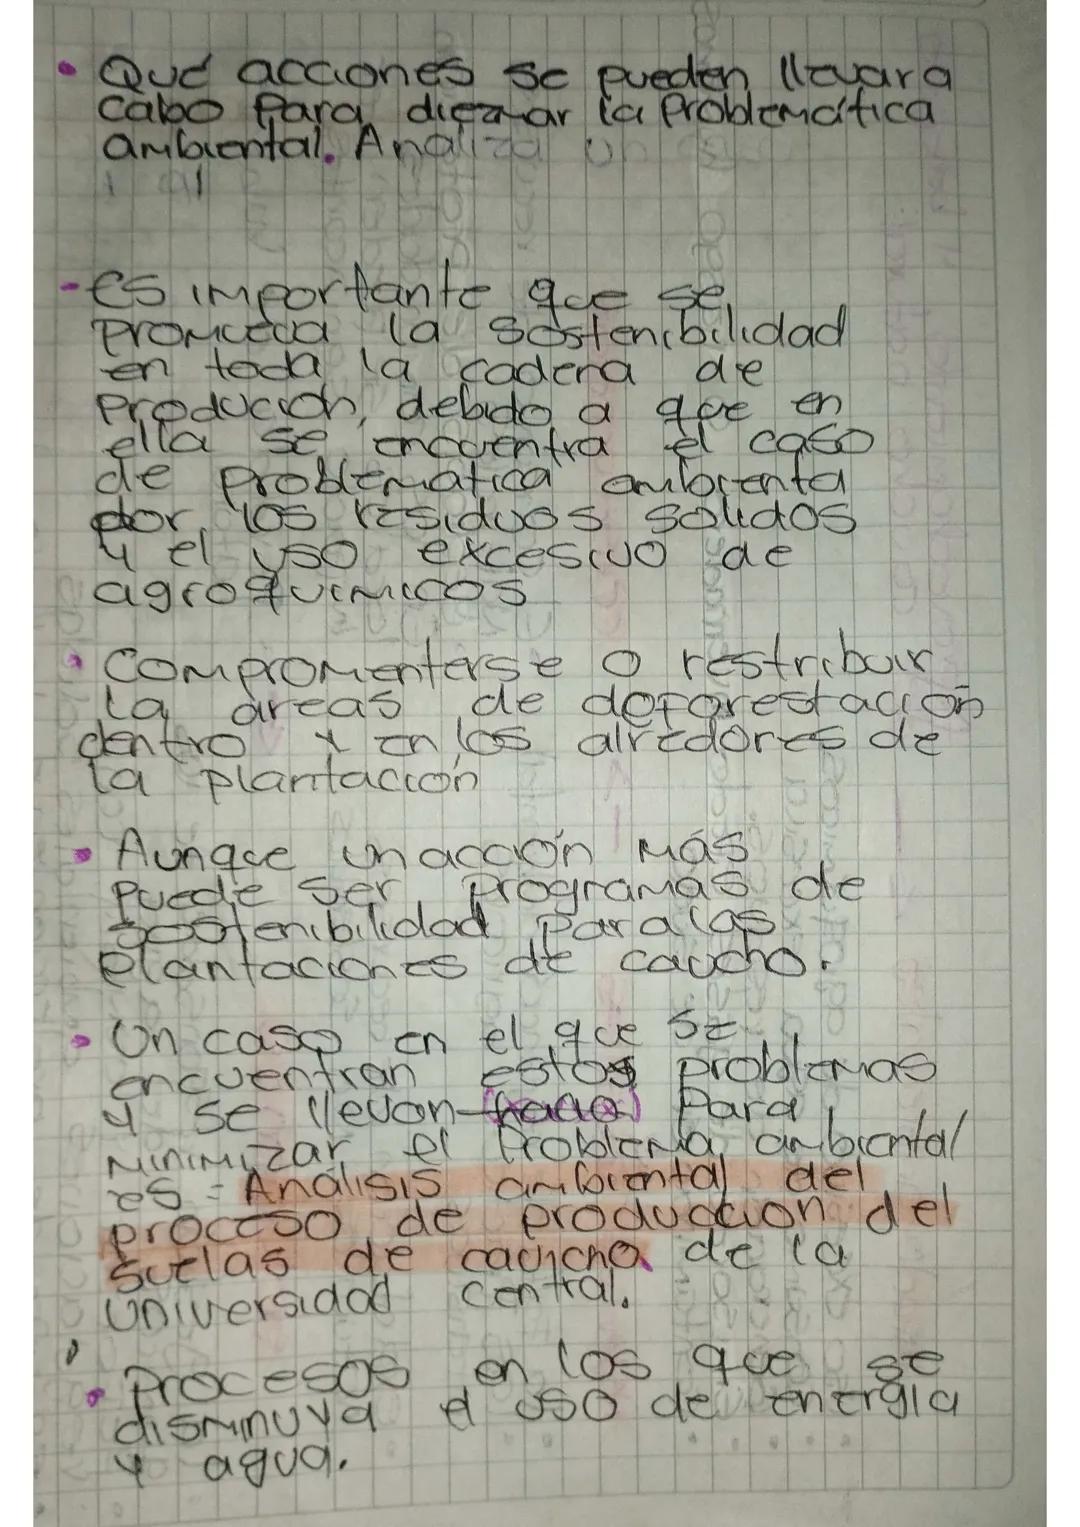 • Que acciones se pueden llevar a
cabo para diezmar la Problemática
ambiental. Analiza un
- es importante que se
promueva la sostenibilidad
en toda la cadena de
Producción, debido a que en
ella se encuentra el caso
de problematica ambienta
por los residuos solidos
y el uso excesivo de
agroquimicos
• Compromenterse o restribuir
la áreas de deforestación
dentro y en los alrededores de
la plantación
• Aunque un acción más
puede ser programas de
sostenibilidad para las
plantaciones de caucho.
• Un caso en el que se
encuentran estos problemas
y se llevan para
minimizar el Problema ambiental
es = Análisis ambiental del
proceso de produccion del
suelas de caucho de la
Universidad central.
• Procesos en los que se
disminuya el uso de energía
y agua.